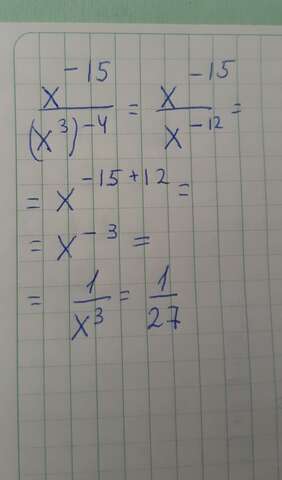 x^-15/(x^3)^-4 = x^-15/x^-12 =
= x^-15+12 =
= x^-3 =
= 1/x^3 = 1/27